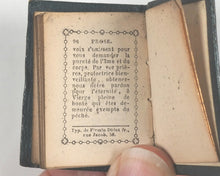 96 PROSE.
voix s'unissent pour
vous demander la
pureté de l'âme et du
corps. Par vos priè-
res, protectrice bien-
veillante, obtenez-
nous d'être pardon
pour l'éternité, ô
Vierge pleine de
bonté qui êtes de-
meurée exempte du
péché.
Typ. de Firmin Didot fr.,
rue Jacob, 56.